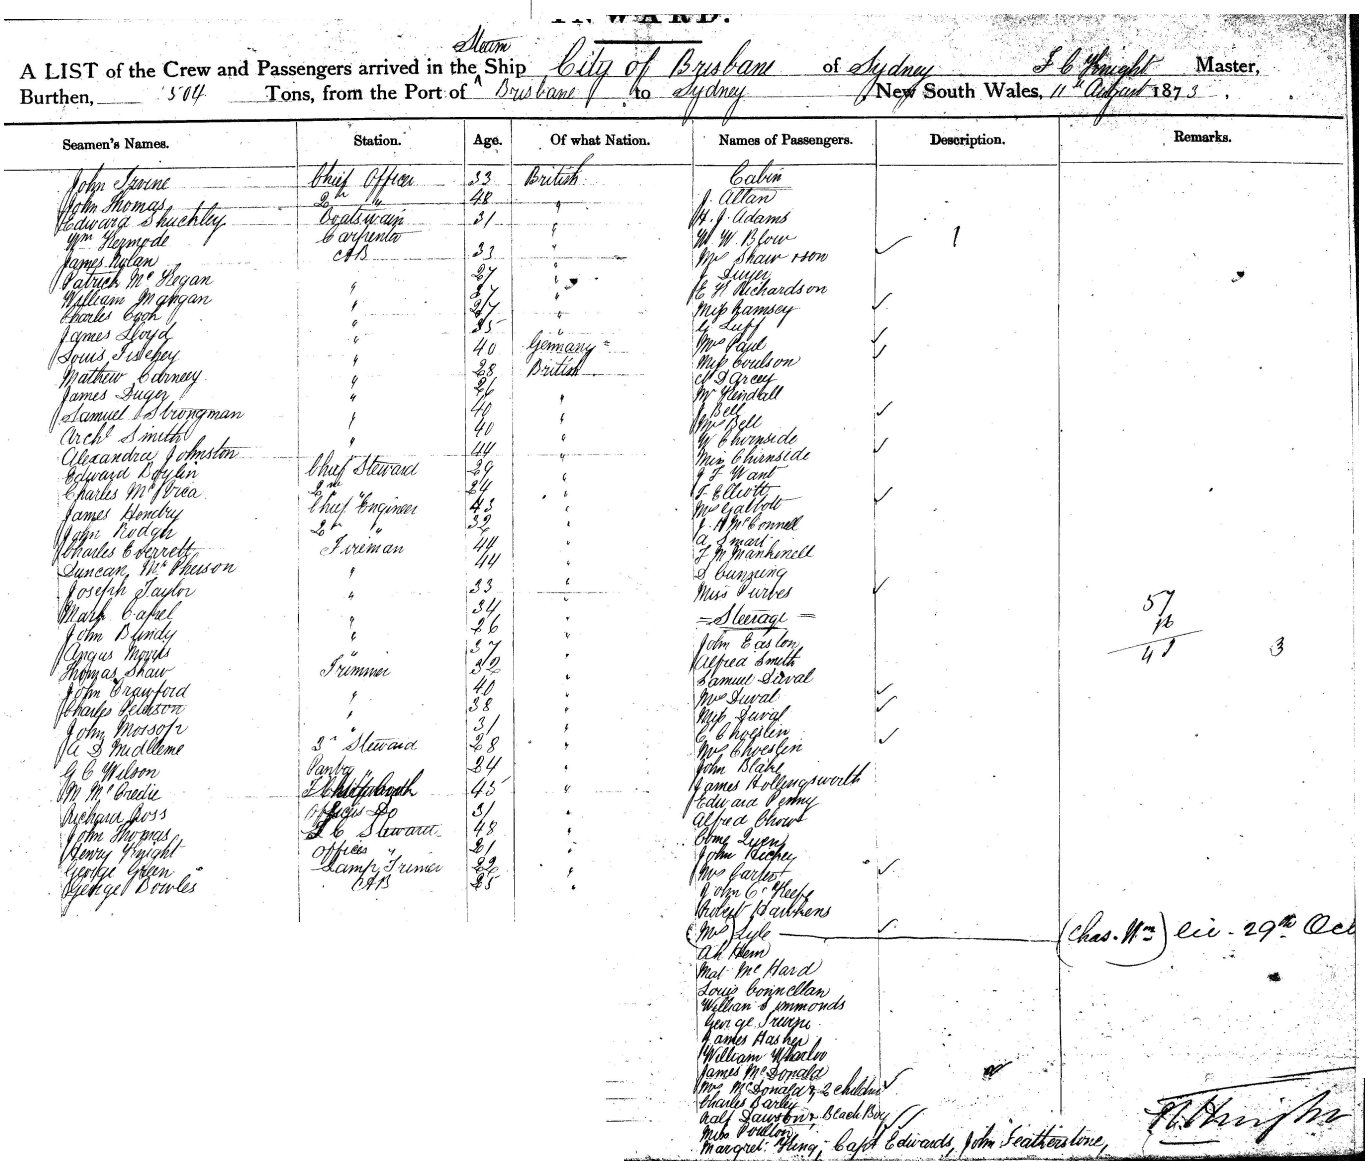 INWARD.
Steam
A LIST of the Crew and Passengers arrived in the Ship City of Brisbane of Sydney F C Knight Master,
Burthen, 504 Tons, from the Port of Brisbane to Sydney New South Wales, 11th August 1873.
Seamen's Names. Station. Age. Of what Nation. Names of Passengers. Description. Remarks.
John Irvine Chief Officer 33 British
John Thomas 2nd " 48 "
Edward Shuchley Boatswain 31 "
Wm Kermode Carpenter
James Nylan AB 33 "
Patrick McKegan 27 "
William Mangan " 27 "
Charles Cook " 27 "
James Lloyd " 35 "
Louis " 40 Germany
Mathew Carney " 28 British
James Duger " 26
Samuel Strongman " 40 "
Archd Smith " 40 "
Alexandra Johnston " 44 "
Edward Boylin Chief Steward 29 "
Charles McCrea 2nd " 24 "
James Hendry Chief Engineer 43 "
John Rodger 2nd " 32 "
Charles Everrett Fireman 44 "
Duncan McPherson " 44 "
Joseph Taylor " 33 "
Mark Capel 34 "
John Bundy " 26 "
Angus Morris " 37 "
Thomas Shaw Trimmer 32
John Crawford 40 "
Charles Peterson " 38 "
John Morsop " 31 "
A D Midleme 3rd Steward 28 "
G C Wilson Pantry 24 "
M McCredie 45 "
Richard Ross Officers Do 31 "
John Thomas F C Steward 48 "
Henry Knight Offices " 21 "
George Green Lamp Trimer 22 "
George Bowles AB 25 "
Cabin
J. Allan
H. J. Adams
W. W. Blow 1
Mrs Shaw & son
J Duyer
E H Richardson
Miss Ramsey
G Luff
Mrs Paul
Miss Coulson
D'Arcey
Mr Kendall
J Bell
Mrs Bell
W Chirnside
Miss Chirnside
J F Want
F. Elliott
Mrs Galbott
J. H McConnell
A Smart
F M
D Cunning
Miss Purves
= Steerage =
57
16
41 3
John Easton
Alfred Smith
Samuel Duval
Mrs Duval
Miss Duval
C Choeslin
Mrs Choeslin
John Blake
James Hollingsworth
Edward Penny
Alfred Chow
John Hickey
Mrs Carter
John O'Keefe
Robert Hawkens
(Mrs) Lyle (Chas. Wm) lic. 29th Oct
Ah Hem
Mat McHard
Louis Connellan
William Simmonds
George Irwin
James Hasher
William Wharloo
James McDonald
Mrs McDonald & 2 Children
Charles Barley
Ralf Dawson & Black Boy
Miss Poulton
Margret King, Capt Edwards, John Featherstone,
F C Knight